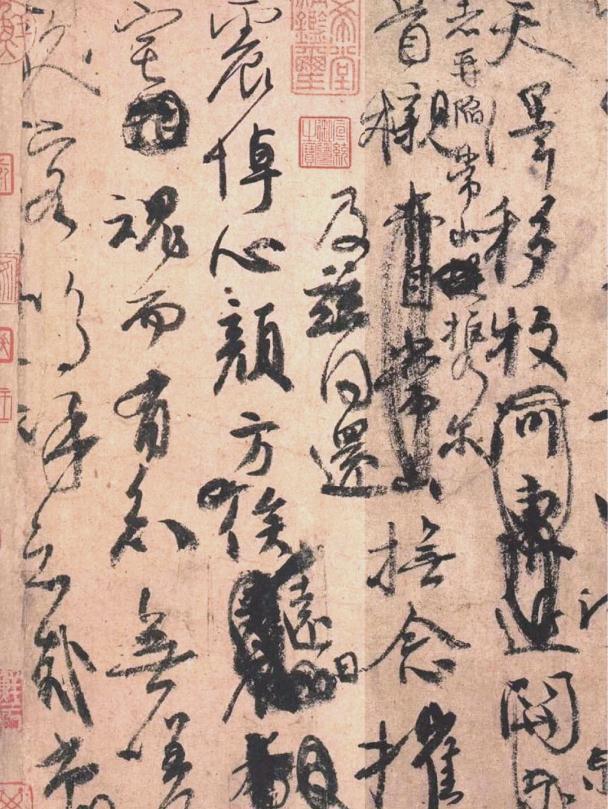 天澤移牧河東近關
者再陷常山攜爾
首櫬亦自常山撫念摧
及茲同還
震悼心顏方俟遠日
宅魂而有知無嗟
久客嗚呼哀哉尚